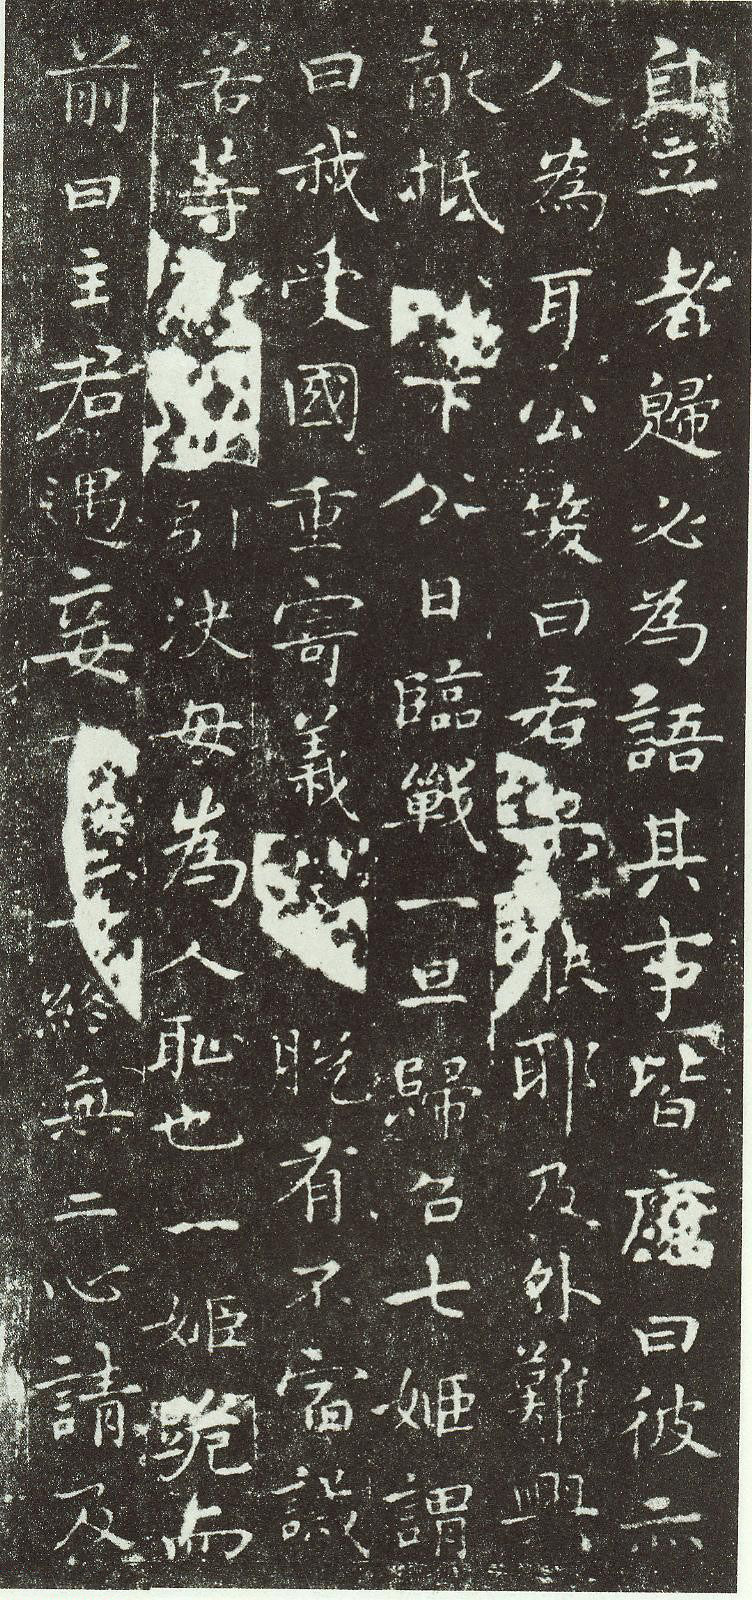 自立者歸必為語其事皆應曰彼亦
人為耳公笑曰若耶及外難興
敵抵城下公日臨戰一旦歸召七姬謂
曰我受國重寄義脫有不宿誡
若等引決毋為人恥也一姬跪而
前曰主君遇妾終無二心請及